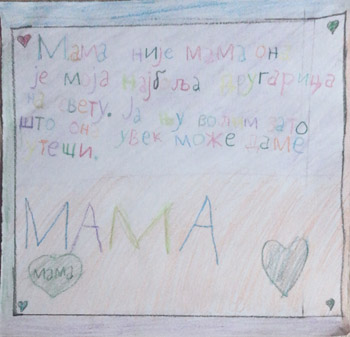 Мама није мама она
је моја најбоља другарица
на свету. Ја њу волим зато
што она увек може даме
утеши.
МАМА
мама